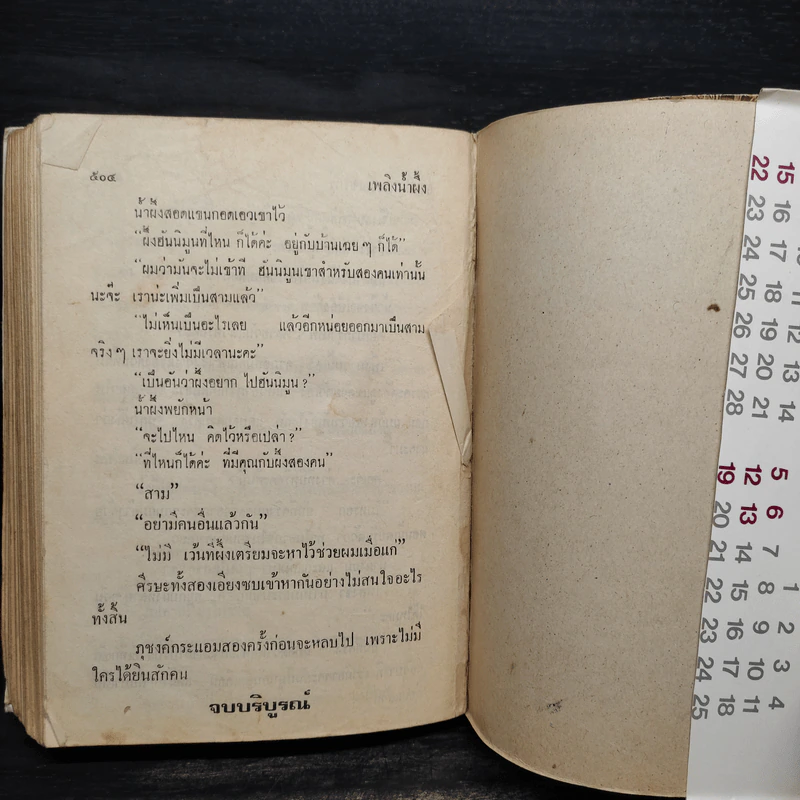 ๕๐๔ เพลิงน้ำผึ้ง
น้ำผึ้งสอดแขนกอดเอวเขาไว้
“ผึ้งฮันนิมูนที่ไหน ก็ได้ค่ะ อยู่กับบ้านเฉย ๆ ก็ได้”
“ผมว่ามันจะไม่เข้าที ฮันนิมูนเขาสำหรับสองคนเท่านั้น
นะจ๊ะ เราน่ะเพิ่มเป็นสามแล้ว”
“ไม่เห็นเป็นอะไรเลย แล้วอีกหน่อยออกมาเป็นสาม
จริง ๆ เราจะยิ่งไม่มีเวลานะคะ”
“เป็นอันว่าผึ้งอยาก ไปฮันนิมูน ?”
น้ำผึ้งพยักหน้า
“จะไปไหน คิดไว้หรือเปล่า ?”
“ที่ไหนก็ได้ค่ะ ที่มีคุณกับผึ้งสองคน”
“สาม”
“อย่ามีคนอื่นแล้วกัน”
“ไม่มี เว้นที่ผึ้งเตรียมจะหาไว้ช่วยผมเมื่อแก่”
ศีรษะทั้งสองเอียงซบเข้าหากันอย่างไม่สนใจอะไร
ทั้งสิ้น
ภุชงค์กระแอมสองครั้งก่อนจะหลบไป เพราะไม่มี
ใครได้ยินสักคน
จบบริบูรณ์
15 22
16 23
17 24
11 18 25
12 19 26
13 20 27
14 21 28
5 12 19
6 13 20
7 14 21
1 8 15 22
2 9 16 23
3 10 17 24
4 11 18 25